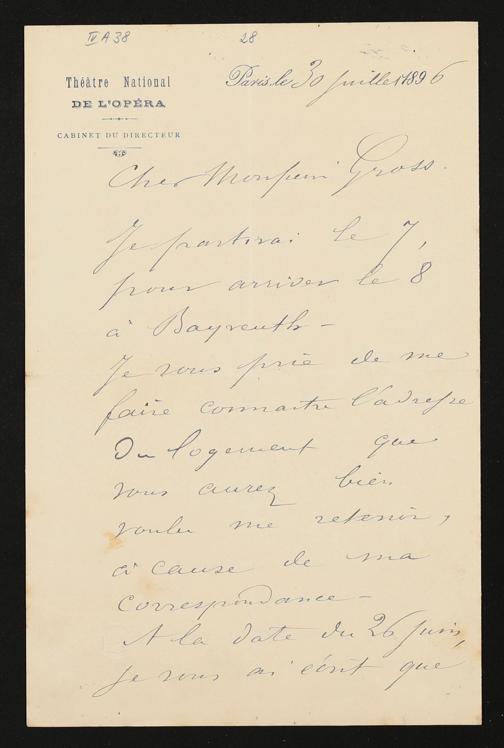 IV A 38
28
Théâtre National
DE L'OPÉRA
CABINET DU DIRECTEUR
Paris, le 30 Juillet 1896
Cher Monsieur Gross.
Je partirai le 7,
pour arriver le 8
à Bayreuth –
Je vous prie de me
faire connaitre l'adresse
Du logement que
vous aurez bien
voulu me retenir,
à cause de ma
correspondance –
A la date du 26 juin,
je vous ai écrit que